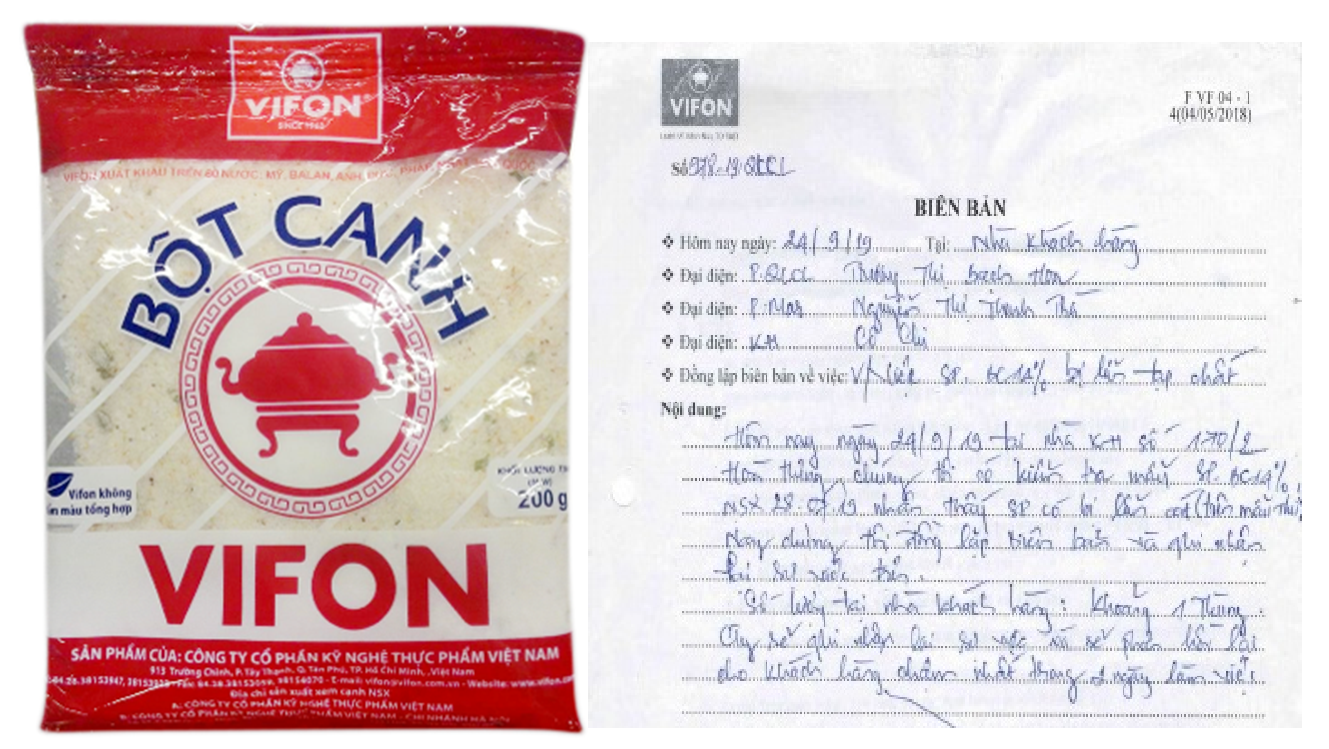 VIFON
SINCE 1963
VIFON XUẤT KHẨU TRÊN 60 NƯỚC: MỸ, BALAN, ANH, ĐỨC, PHÁP
BỘT CANH
Vifon không
màu tổng hợp
KHỐI LƯỢNG
200 g
VIFON
SẢN PHẨM CỦA: CÔNG TY CỔ PHẦN KỸ NGHỆ THỰC PHẨM VIỆT NAM
913 Trường Chinh, P. Tây Thạnh, Q. Tân Phú, TP. Hồ Chí Minh, Việt Nam
E-mail: vifon@vifon.com.vn - Website: www.vifon.co
Địa chỉ sản xuất xem cạnh NSX
A: CÔNG TY CỔ PHẦN KỸ NGHỆ THỰC PHẨM VIỆT NAM
B: CÔNG TY CỔ PHẦN KỸ NGHỆ THỰC PHẨM VIỆT NAM - CHI NHÁNH HÀ NỘI
VIFON
F VF 04 - 1
4(04/05/2018)
Số 978-19-QLCL
BIÊN BẢN
❖ Hôm nay ngày: 24/9/19 Tại: Nhà khách hàng
❖ Đại diện: P.QLCL Thị Bạch
❖ Đại diện: P.Mar Nguyễn Thị Thanh
❖ Đại diện: KH Cô Chi
❖ Đồng lập biên bản về việc: V/v SP. BC14% bị lẫn tạp chất
Nội dung:
Hôm nay ngày 24/9/19 tại nhà KH số 170/2
chúng tôi có kiểm tra mẫu SP. BC14%,
NSX 28.07.19 nhận thấy SP có bị lẫn cát (trên mẫu
Nay chúng tôi đồng lập biên bản và ghi nhận
lại sự việc trên.
Số lượng tại nhà khách hàng: Khoảng 1 Thùng.
Cty sẽ ghi nhận lại sự việc và sẽ phản hồi lại
cho khách hàng chậm nhất trong 2 ngày làm việc.